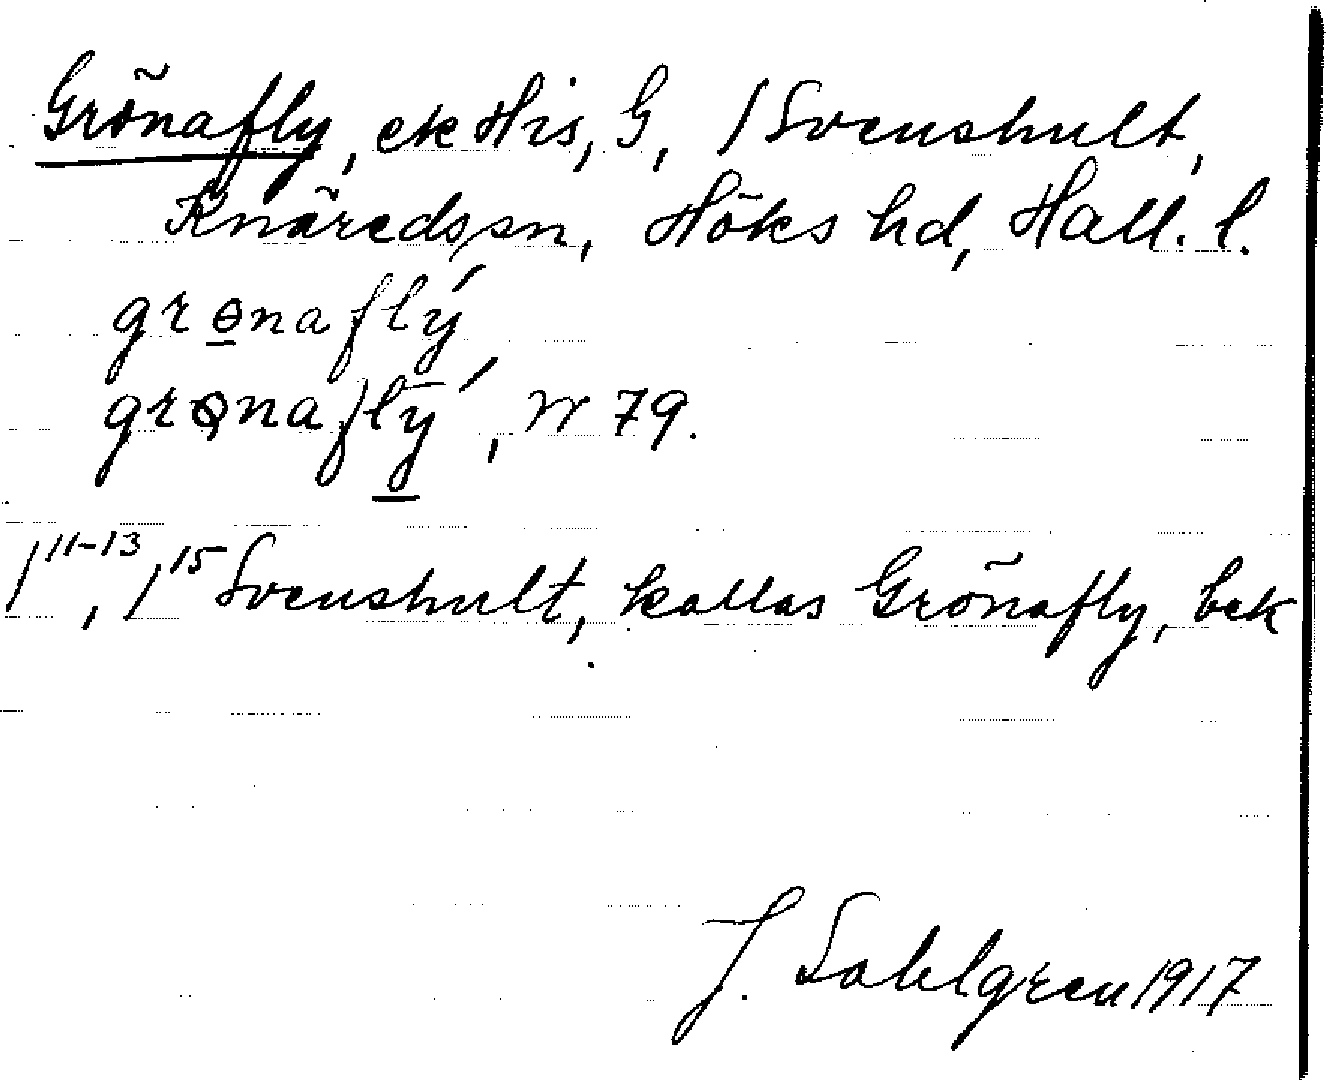 Grönafly, ek His, G, / Svenshult,
Knäreds sn, Höks hd, Hall. l.
grɵnaflý
grɵnaflȳ́, W 79.
/11-13, /15 Svenshult, kallas Grönafly, bek
J. Sahlgren 1917